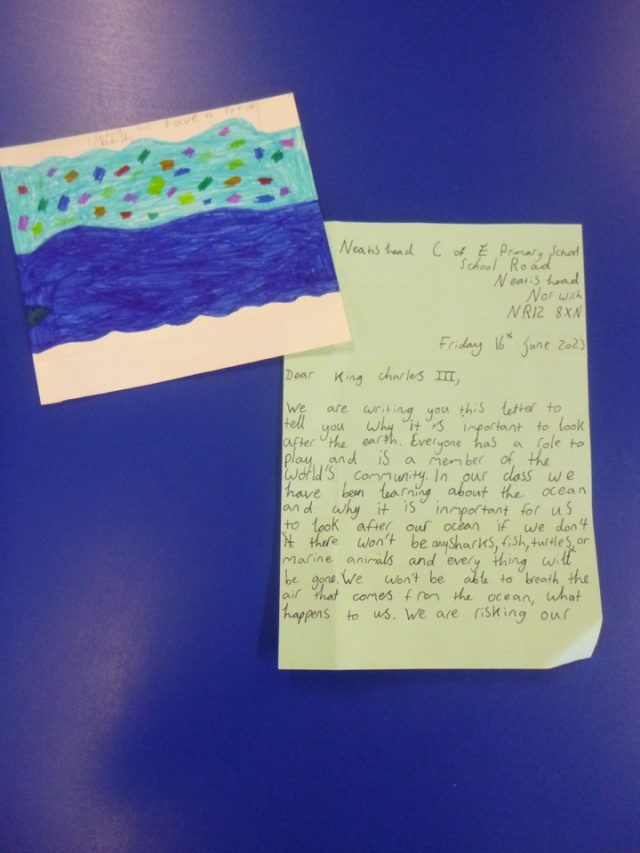 we have a lot of
Neatishead C of E Primary School
School Road
Neatishead
Norwich
NR12 8XN
Friday 16th June 2023
Dear King Charles III,
We are writing you this letter to
tell you why it is important to look
after the earth. Everyone has a role to
play and is a member of the
World's community. In our class we
have been learning about the ocean
and why it is inmportant for us
to look after our ocean if we don't
there won't be any sharks, fish, turtles, or
marine animals and every thing will
be gone. We won't be able to breath the
air that comes from the ocean, what
happens to us. We are risking our